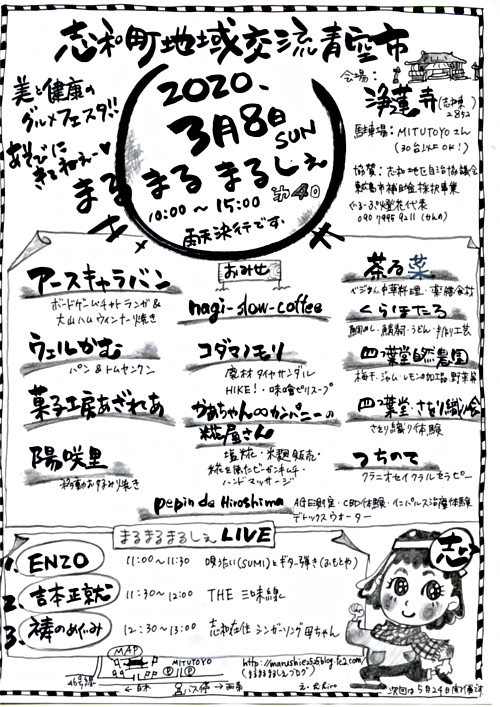 志和町地域交流青空市
美と健康の
グルメフェスタ!!
あそびに
きてねぇー♥
2020.
3月8日
SUN
まるまるまるしぇ
10:00〜15:00
雨天決行です
会場:
浄蓮寺
駐車場:MITUTOYOさん
(30台以上OK!)
協賛:志和地区自治協議会
東広島市補助金採択事業
ぐるーぷ燈花代表
おみせ
アースキャラバン
ボードゲームチャトランガ&
大山ハムウィンナー焼き
ウェルかむ
パン&トムセンクン
菓子工房あざれあ
陽咲里
移動お好み焼き
nagi-slow-coffee
コダマノモリ
廃材タイヤサンダル
HIKE!・味噌ピリスープ
かあちゃん∞カンパニーの
糀屋さん
塩糀・米麹販売・
糀を使たビーガンキムチ・
ハンドマッサージ
pepin de Hiroshima
AGE測定・CBD体験・インパルス治療体験
デトックスウォーター
茶る菜
ベジタブル中華料理・薬膳食材
くらほたる
四つ葉堂自然農園
梅干、ジャム・レモンの加工品、野菜等
四つ葉堂・さをり織り会
さをり織り体験
つちのて
クラニオセイクラルセラピー
まるまるまるしぇ LIVE
1. ENZO
11:00〜11:30
唄うたい(SUMI)とギター弾き(おもとや)
2. 吉本正就
11:30〜12:00
THE 三味線
3. 祷のめぐみ
12:30〜13:00
志和在住シンガーソング母ちゃん
志
MAP
MITUTOYO
PP
バス停
次回は5月24日開催決
(まるまるまるしぇブログ)